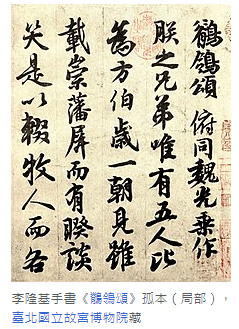 鶺鴒頌 俯同魏光乘作
朕之兄弟唯有五人比
為方伯歲一朝見雖
載崇藩屏而有睽談
笑是以輟牧人而各
李隆基手書《鶺鴒頌》孤本（局部），
臺北國立故宮博物院藏